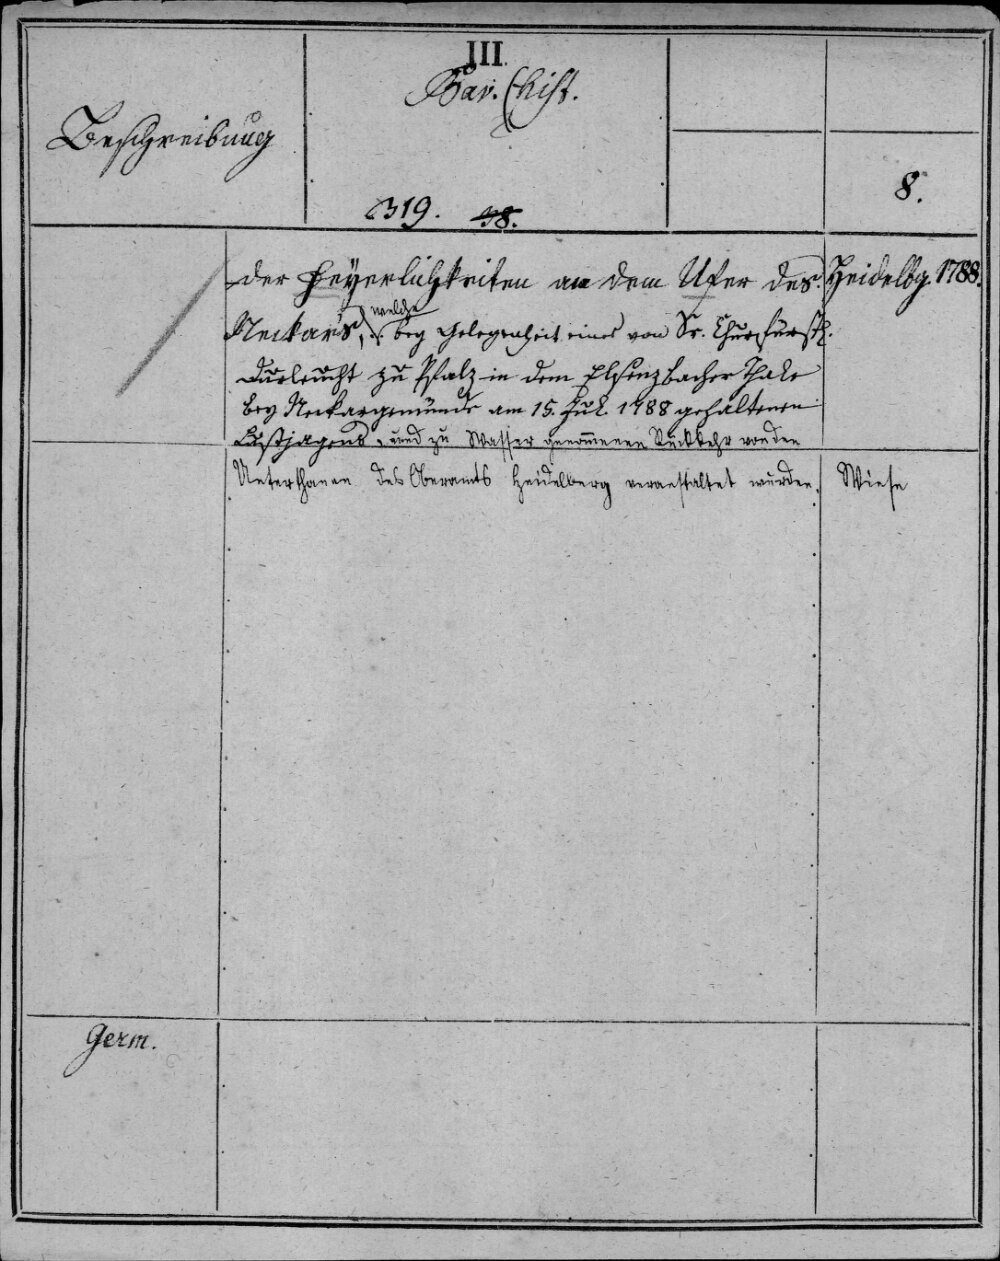 III.
Bav. Hist.
Beschreibung
8.
319. 38.
der Feyerlichkeiten an dem Ufer des Heidelbg. 1788.
Neckars, welche bey Gelegenheit eines von Sr. Churfürstl.
Durleucht zu Pfalz in dem Elsenzbacher Thale
bey Neckargemünde am 15. Jul. 1788 gehaltenen
Lustjagens, und zu Wasser genommenen Rückkehr von den
Unterthanen des Oberamts Heidelberg veranstaltet wurden. Wiese
Germ.